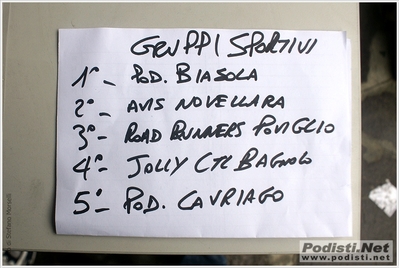 GRUPPI SPORTIVI
1°- POD. BIASOLA
2°- AVIS NOVELLARA
3°- ROAD RUNNERS POVIGLIO
4°- JOLLY CTL BAGNOLO
5°- POD. CAVRIAGO
Podisti.Net
www.podisti.net
© Stefano Morselli